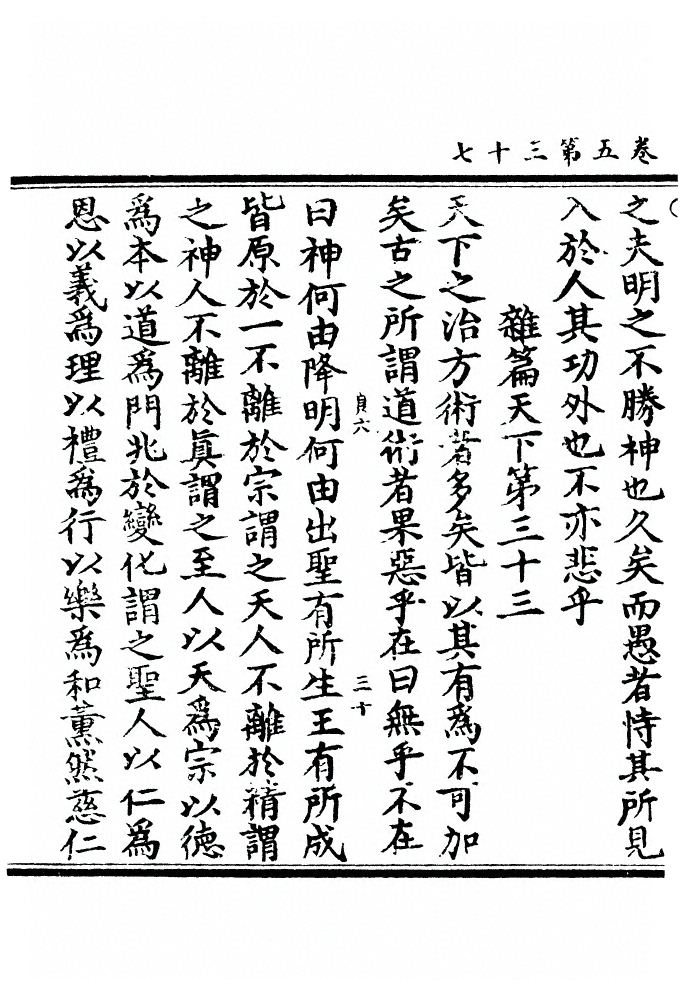 卷五第三十七
之夫明之不勝神也久矣而愚者恃其所見
入於人其功外也不亦悲乎
雜篇天下第三十三
天下之治方術者多矣皆以其有爲不可加
矣古之所謂道術者果惡乎在曰無乎不在
貞六
三十
曰神何由降明何由出聖有所生王有所成
皆原於一不離於宗謂之天人不離於精謂
之神人不離於眞謂之至人以天爲宗以德
爲本以道爲門兆於變化謂之聖人以仁爲
恩以義爲理以禮爲行以樂爲和薰然慈仁